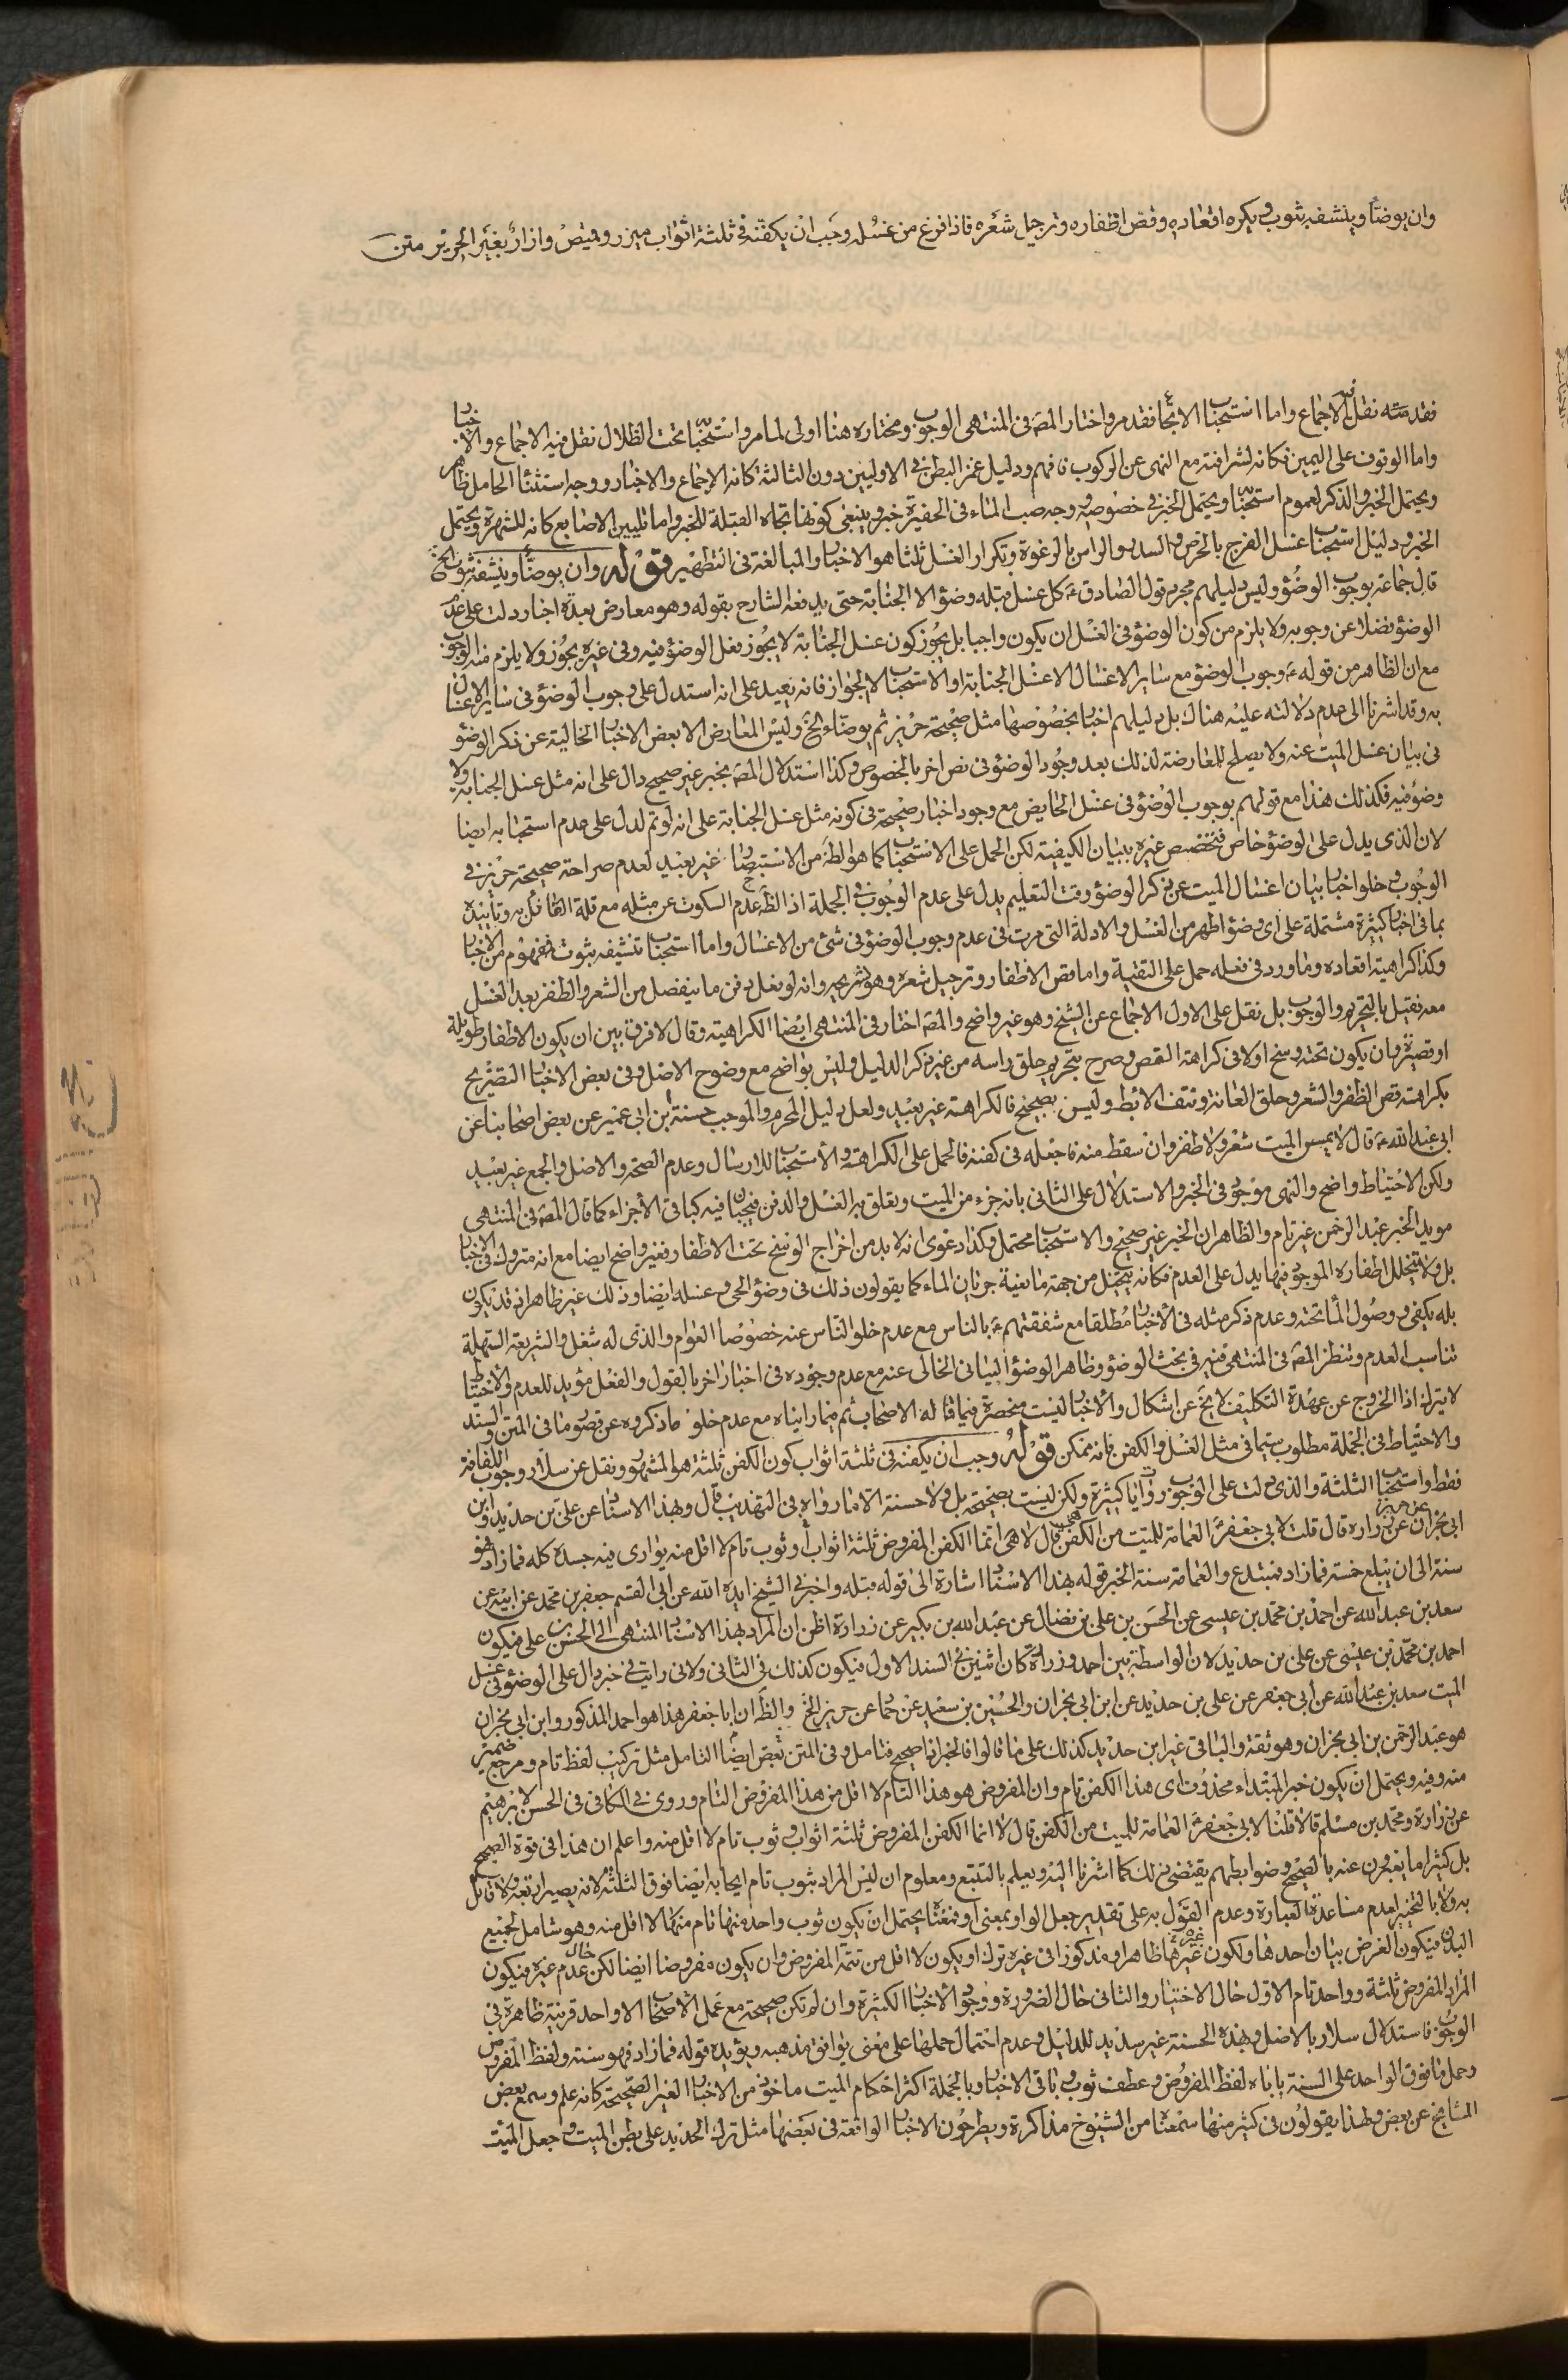 وان يوضأ وينشفه بثوب ويكره اقعاده وقص اظفاره وترجيل شعره فاذا فرغ من غسله وجب ان يكفنه في ثلثة اثواب ميزر وقميص وازار بغير الحرير متن
فقد مته نقل الاجماع واما استحباب الاتجا فقد مر واختار المصه في المنتهى الوجوب ومختاره هنا اولى لما مر واستحبابه تحت الظلال نقل فيه الاجماع والاخبار
واما الوقوف على اليمين فكانه لشرافته مع النهى عن الركوب فافهم ودليل غمز البطن في الاوليين دون الثالثة كانه الاجماع والاخبار ووجه استثناء الحامل ظاهر
ويحتمل الخبر والذكر لعموم استحبابه ويحتمل الخبر في خصوصه ووجه صب الماء في الحفيرة خبر وينبغى كونها تجاه القبلة للخبر واما تليين الاصابع كانه للشهرة ويحتمل
الخبر ودليل استحباب غسل الفرج بالحرض والسدر والراس بالرغوة وتكرار الغسل ثلثا هو الاخبار والمبالغة في التطهير قوله وان يوضأ وينشفه بثوب الخ
قال جماعة بوجوب الوضؤ وليس دليلهم مجرد قول الصادق ع كل غسل قبله وضؤ الا الجنابة حتى يدفعه الشارح بقوله وهو معارض بعدة اخبار دلت على عدم
الوضؤ فضلا عن وجوبه ولا يلزم من كون الوضؤ في الغسل ان يكون واجبا بل يجوز كون غسل الجنابة لا يجوز فعل الوضؤ فيه وفى غيره يجوز ولا يلزم منه الوجوب
مع ان الظاهر من قوله ع وجوب الوضؤ مع ساير الاغسال الا غسل الجنابة او الاستحباب لا الجواز فانه بعيد على انه استدل على وجوب الوضؤ فى ساير الاغسال
به وقد اشرنا الى عدم دلالته عليه هناك بل دليلهم اخبار بخصوصها مثل صحيحة حريز ثم يوضاء الخ وليس المعارض الا بعض الاخبار الخالية عن ذكر الوضؤ
فى بيان غسل الميت عنه ولا يصلح للمعارضة لذلك بعد وجود الوضؤ فى نص اخر بالخصوص وكذا استدلال المصه بخبر غير صحيح دال على انه مثل غسل الجنابة ولا
وضؤ فيه فكذلك هذا مع قولهم بوجوب الوضؤ فى غسل الحايض مع وجود اخبار صحيحة فى كونه مثل غسل الجنابة على انه لو تم لدل على عدم استحبابه ايضا
لان الذى يدل على الوضؤ خاص فتخصص غيره ببيان الكيفية لكن الحمل على الاستحباب كما هو الظه من الاستبصار غير بعيد لعدم صراحة صحيحة حريز فى
الوجوب وخلو اخبار بيان اغسال الميت عن ذكر الوضؤ وقت التعليم يدل على عدم الوجوب في الجملة اذ الظه عدم السكوت عن مثله مع قلة القائل به وتاييده
بما فى اخبار كثيرة مشتملة على اى وضؤ اطهر من الغسل والادلة التى مرت فى عدم وجوب الوضؤ فى شئ من الاغسال واما استحباب تنشيفه بثوب فمفهوم من الاخبار
وكذا كراهية اقعاده وما ورد فى فعله حمل على التقية واما قص الاظفار وترجيل شعره وهو تسريحه وانه لو فعل دفن ما ينفصل من الشعر والظفر بعد الغسل
معه فقيل بالتحريم والوجوب بل نقل على الاول الاجماع عن الشيخ وهو غير واضح والمصه اختار فى المنتهى ايضا الكراهية وقال لا فرق بين ان يكون الاظفار طويلة
او قصيرة وان يكون تحته وسخ اولا فى كراهة القص وصرح بتحريم حلق راسه من غير ذكر الدليل وليس بواضح مع وضوح الاصل وفى بعض الاخبار التصريح
بكراهة قص الظفر والشعر وحلق العانة ونتف الابط وليس بصحيح فالكراهة غير بعيد ولعل دليل المحرم والموجب حسنة ابن ابى عمير عن بعض اصحابنا عن
ابى عبد الله ع قال لا يمس الميت شعر ولا ظفر وان سقط منه فاجعله فى كفنه فالحمل على الكراهة والاستحباب للارسال وعدم الصحة والاصل والجمع غير بعيد
ولكن الاحتياط واضح والنهى موجود فى الخبر والاستدلال على الثانى بانه جزء من الميت ويعلق به الغسل والدفن فيجبان فيه كباقى الاجزاء كما قال المصه فى المنتهى
مويد الخبر عبد الرحمن غير تام والظاهر ان الخبر غير صحيح والاستحباب محتمل وكذا دعوى انه لا بد من اخراج الوسخ تحت الاظفار فغير واضح ايضا مع انه متروك فى الاخبار
بل ولا تتخلل اظفاره الموجود فيها يدل على العدم فكانه يتخيل من جهة مانعية جريان الماء كما يقولون ذلك فى وضؤ الحى وغسله ايضا وذلك غير ظاهر اذ قد يكون
بله يكفى ووصول الماء تحته وعدم ذكر مثله فى الاخبار مطلقا مع شفقتهم ع بالناس مع عدم خلو الناس عنه خصوصا العوام والذى له شغل والشريعة السهلة
تناسب العدم وتنظر المصه فى المنتهى فيه فى بحث الوضؤ وظاهر الوضؤ البيانى الخالى عنه مع عدم وجوده فى اخبار اخر بالقول والفعل مؤيد للعدم والاحتياط
لا يترك اذا الخروج عن عهدة التكليف لا يخ عن اشكال والاخبار ليست منحصرة فيما قاله الاصحاب ثم فيما رايناه مع عدم خلو ما ذكروه عن قصور ما فى المتن والسند
والاحتياط فى الجملة مطلوب سيما فى مثل الغسل والكفن فانه ممكن قوله وجب ان يكفنه فى ثلثة اثواب كون الكفن ثلثة هو المشهور ونقل عن سلار وجوب اللفافة
فقط واستحباب الثلثة والذى دلت على الوجوب روايا كثيرة ولكن ليست بصحيحة بل ولا حسنة الا ما رواه فى التهذيب قال وبهذا الاسناد عن على بن حديد وابن
ابى نجران عن حريز عن زراره قال قلت لابى جعفر ع العمامة للميت من الكفن هى قال لا انما الكفن المفروض ثلثة اثواب او ثوب تام لا اقل منه يوارى فيه جسده كله فما زاد فهو
سنة الى ان يبلغ خمسة فما زاد فمبتدع والعمامة سنة الخبر قوله بهذا الاسناد اشارة الى قوله قبله واخبرنى الشيخ ايده الله عن ابى القسم جعفر بن محمد عن ابيه عن
سعد بن عبد الله عن احمد بن محمد بن عيسى عن الحسن بن على بن فضال عن عبد الله بن بكير عن زرارة اظن ان المراد بهذا الاسناد المنتهى الى الحسن بن على فيكون
احمد بن محمد بن عيسى عن على بن حديد لان الواسطة بين احمد وزرارة كان اثنين فى السند الاول فيكون كذلك فى الثانى ولانى رايت فى خبر دال على الوضؤ فى غسل
الميت سعد بن عبد الله عن ابى جعفر عن على بن حديد عن ابن ابى نجران والحسين بن سعيد عن حماد عن حريز الخ والظه ان ابا جعفر هذا هو احمد المذكور وابن ابى نجران
هو عبد الرحمن بن ابى نجران وهو ثقة والباقى غير ابن حديد كذلك على ما قالوا فالخبر اذا صحيح فتامل وفى المتن بعض ايضا التامل مثل تركيب لفظ تام ومرجع ضمير
منه وفيه ويحتمل ان يكون خبر المبتداء محذوف اى هذا الكفن تام وان المفروض هو هذا التام لا اقل من هذا المفروض التام وروى فى الكافى فى الحسن لابرهيم
عن زرارة ومحمد بن مسلم قالا قلنا لابى جعفر ع العمامة للميت من الكفن قال لا انما الكفن المفروض ثلثة اثواب وثوب تام لا اقل منه واعلم ان هذا فى قوة الصحيح
بل كثيرا ما يعبرون عنه بالصحيح وضوابطهم يقتضى ذلك كما اشرنا اليه ويعلم بالتتبع ومعلوم ان ليس المراد بثوب تام ايجابه ايضا فوق الثلثة لانه يصير اربعة ولا قائل
به ولا بالتخيير لعدم مساعدة العبارة وعدم القول به على تقدير جعل الواو بمعنى او فمعناه يحتمل ان يكون ثوب واحد منها تام منها لا اقل منه وهو شامل لجميع
البدن فيكون الغرض بيان احدها ولكون غيرها ظاهرا ومذكورا فى غيره ترك او يكون لا اقل من تتمة المفروض وان يكون مفروضا ايضا لكن حال عدم غيره فيكون
المراد المفروض ثلثة وواحد تام الاول حال الاختيار والثانى حال الضرورة ووجود الاخبار الكثيرة وان لم تكن صحيحة مع عمل الاصحاب الا واحد قرينة ظاهرة فى
الوجوب فاستدلال سلار بالاصل وبهذه الحسنة غير سديد للدليل وعدم احتمال حملها على معنى يوافق مذهبه ويؤيده قوله فما زاد فهو سنة ولفظ المفروض
وحمل ما فوق الواحد على السنة ياباه لفظ المفروض وعطف ثوب وباقى الاخبار وبالجملة اكثر احكام الميت ماخوذ من الاخبار الغير الصحيحة كانه علم وسمع بعض
المشايخ عن بعض ولهذا يقولون فى كثير منها سمعنا من الشيوخ مذاكرة ويطرحون الاخبار الواقعة فى بعضها مثل ترك الحديد على بطن الميت وجعل الميت